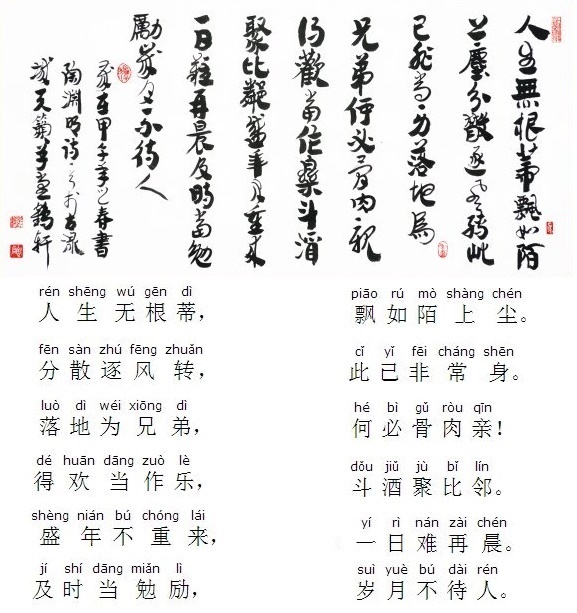 人生無根蒂飄如陌
上塵分散逐風轉此
已非常身落地為
兄弟何必骨肉親
得歡當作樂斗酒
聚比鄰盛年不重來
一日難再晨及時當勉
勵歲月不待人
歲在甲午年之春書
陶淵明詩一首於古
城天籟草堂鶴軒
rén shēng wú gēn dì piāo rú mò shàng chén
人生无根蒂， 飘如陌上尘。
fēn sàn zhú fēng zhuǎn cǐ yǐ fēi cháng shēn
分散逐风转， 此已非常身。
luò dì wéi xiōng dì hé bì gǔ ròu qīn
落地为兄弟， 何必骨肉亲！
dé huān dāng zuò lè dǒu jiǔ jù bǐ lín
得欢当作乐， 斗酒聚比邻。
shèng nián bú chóng lái yí rì nán zài chén
盛年不重来， 一日难再晨。
jí shí dāng miǎn lì suì yuè bú dài rén
及时当勉励， 岁月不待人。